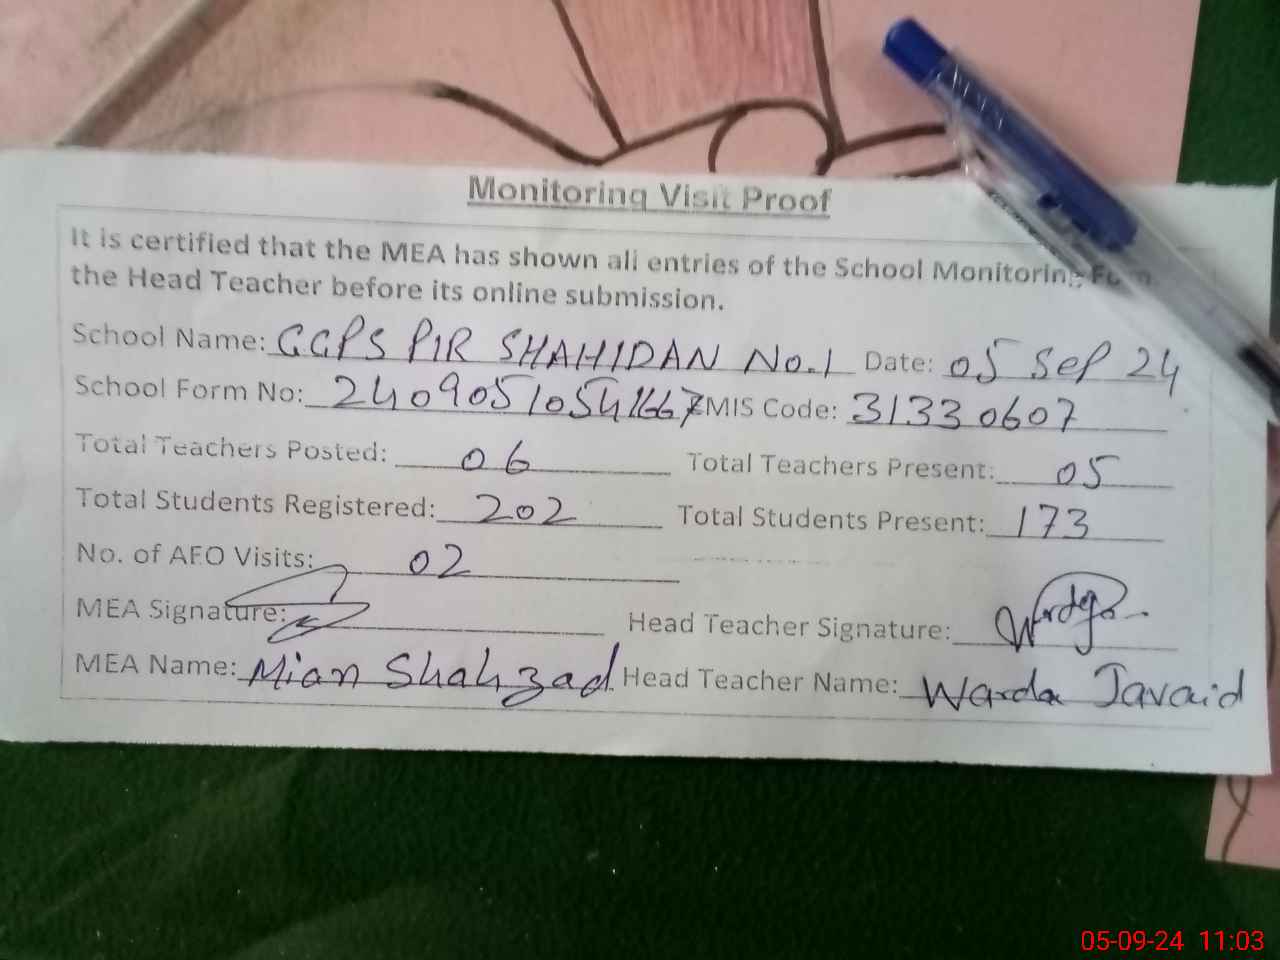 Monitoring Visit Proof
It is certified that the MEA has shown all entries of the School Monitoring Form
the Head Teacher before its online submission.
School Name: GGPS PIR SHAHIDAN No.1 Date: 05 Sep 24
School Form No: MIS Code: 31330607
Total Teachers Posted: 06 Total Teachers Present: 05
Total Students Registered: 202 Total Students Present: 173
No. of AEO Visits: 02
MEA Signature: Head Teacher Signature:
MEA Name: Mian Shahzad Head Teacher Name: Warda Javaid
05-09-24 11:03